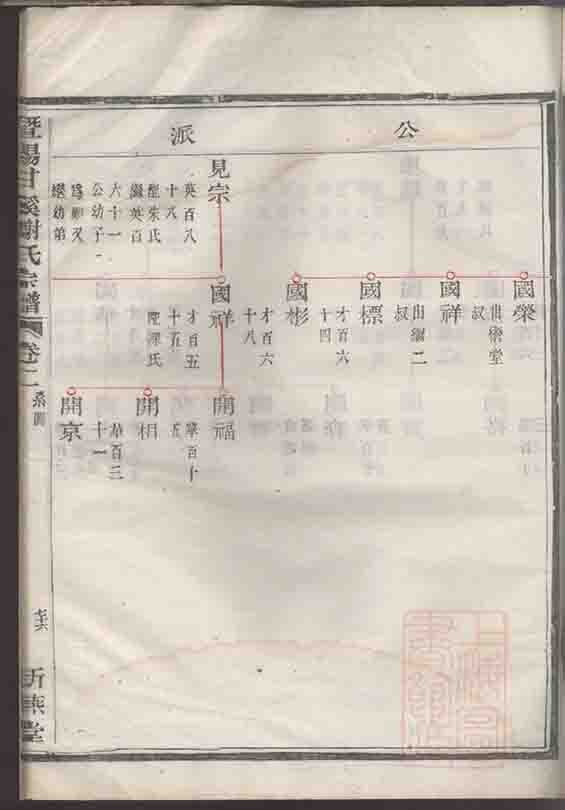 公派
國榮
出繼堂
叔
國祥
出繼二
叔
國標
才百六
十四
國彬
才百六
十八
見宗
英百八
十八
配朱氏
繼英百
六十一
公幼子
國祥
才百五
十五
開福
華百十
五
開相
開京
華百三
十一
暨陽甘溪謝氏宗譜
卷二
系圖